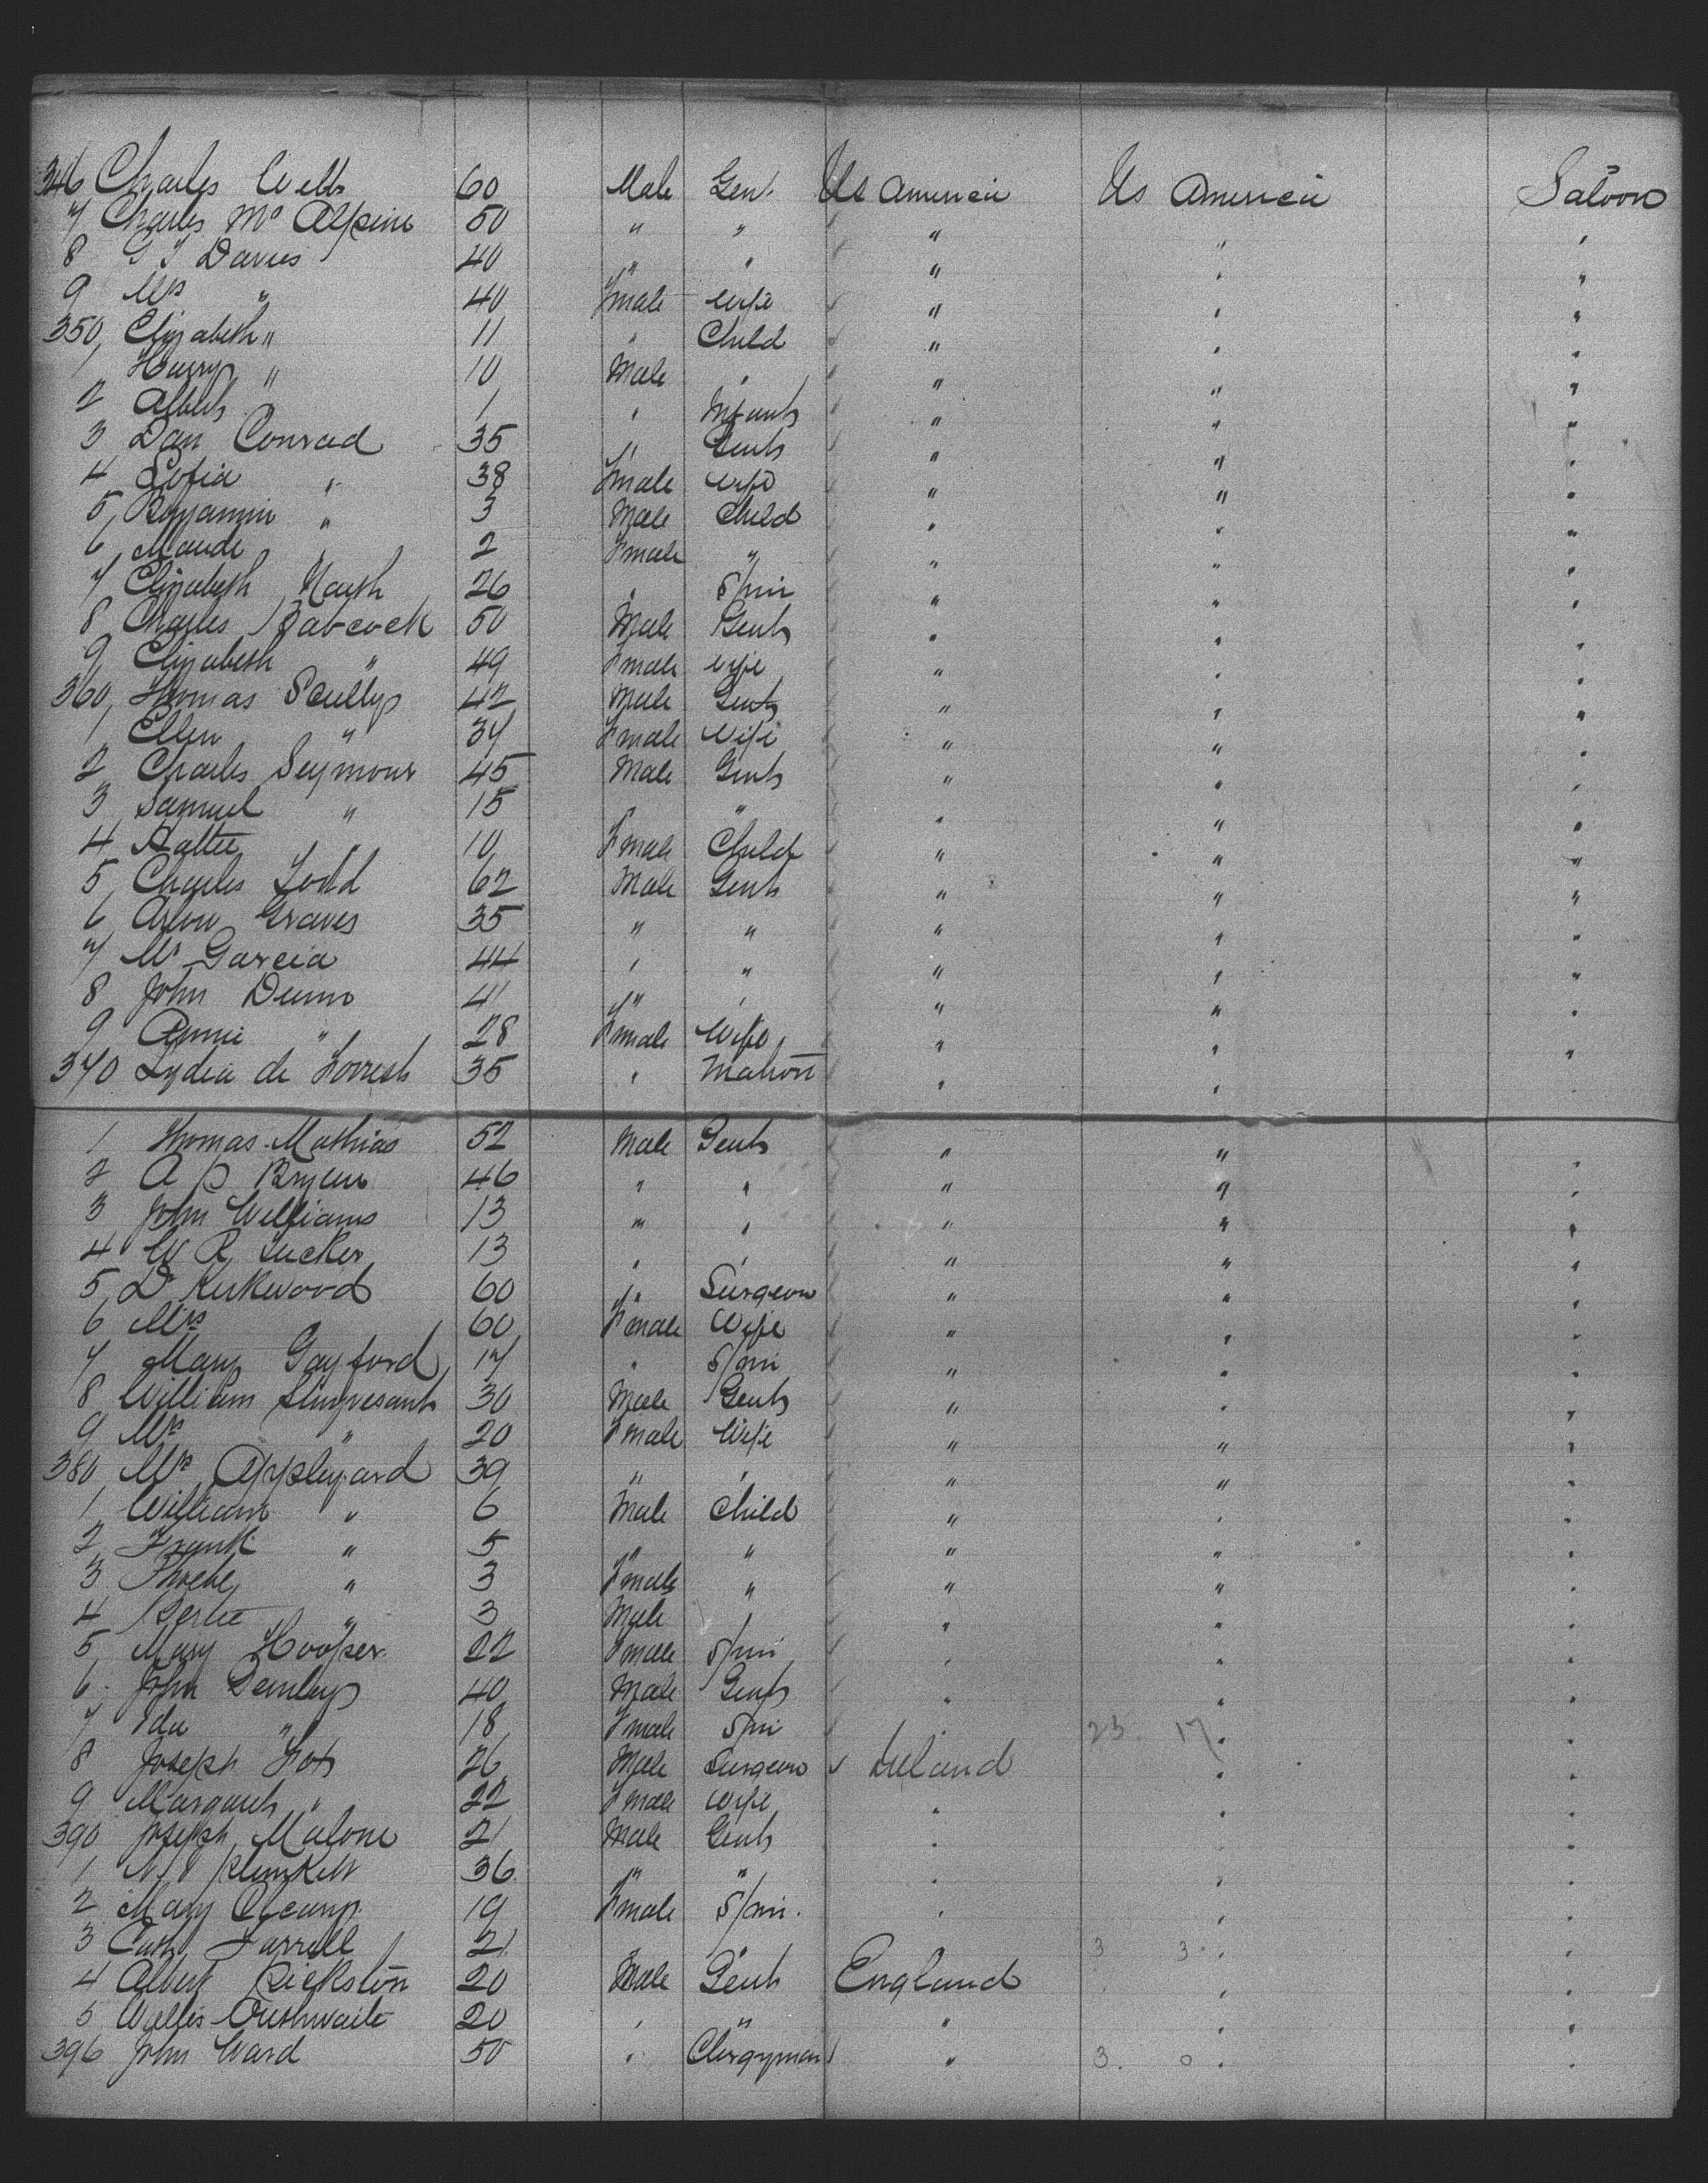 346 Charles Webb 60 Male Gent Us America Us America Saloon
7 Charles Mc Alpine 50 " " " " "
8 G T Davies 40 " " " " "
9 Mrs " 40 Fmale Wife " " "
350 Elizabeth " 11 " Child " " "
1 Harry " 10 Male " " " "
2 Albert 1 " Infant " " "
3 Dan Conrad 35 " Gent " " "
4 Sofia " 38 Fmale Wife " " "
5 Benjamin " 3 Male Child " " "
6 Maude " 2 Fmale " " " "
7 Elizabeth 26 " Spin " " "
8 Charles Babcock 50 Male Gent " " "
9 Elizabeth " 49 Fmale Wife " " "
360 Thomas Scully 42 Male Gent " " "
1 Ellen " 34 Fmale Wife " " "
2 Charles Seymour 45 Male Gent " " "
3 Samuel " 15 " " " " "
4 Hattie " 10 Fmale Child " " "
5 Charles Todd 62 Male Gent " " "
6 Graves 35 " " " " "
7 Mr Garcia 44 " " " " "
8 John Dunn 41 " " " " "
9 Annie " 28 Fmale Wife " " "
370 Lydia de Forrest 35 " Matron " " "
1 Thomas Mathias 52 Male Gent " " "
2 A P 46 " " " " "
3 John Williams 13 " " " " "
4 W R Tucker 13 " " " " "
5 Dr Kirkwood 60 " Surgeon " " "
6 Mrs " 60 Fmale Wife " " "
7 Mary Gayford 17 " Spin " " "
8 William 30 Male Gent " " "
9 Mrs " 20 Fmale Wife " " "
380 Mrs Appleyard 39 " " " " "
1 William " 6 Male Child " " "
2 Frank " 5 " " " " "
3 Phoebe " 3 Fmale " " " "
4 Bertie " 3 Male " " " "
5 Mary Hooper 22 Fmale Spin " " "
6 John Dembey 40 Male Gent " " "
7 Ida " 18 Fmale Spin " 23. 17 " "
8 Joseph 26 Male Surgeon Ireland " "
9 Margaret " 22 Fmale Wife " " "
390 Joseph Malone 21 Male Gent " " "
1 Plunkett 36 " " " " "
2 Mary 19 Fmale Spin. " " "
3 Cath Farrell 21 " " " 3 3 " "
4 Albert Rickston 20 Male Gent England " "
5 20 " " " " "
396 John Ward 50 " Clergyman " 3. 0 " "